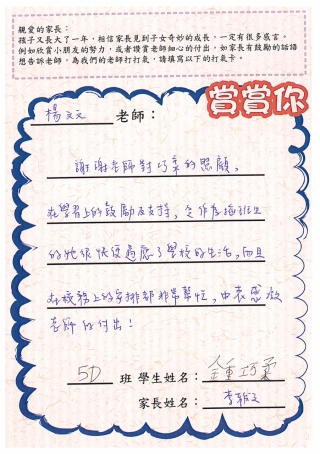 親愛的家長：
孩子又長大了一年，相信家長見到子女奇妙的成長，一定有很多感言。
例如欣賞小朋友的努力，或者讚賞老師細心的付出，如家長有鼓勵的話語
想告訴老師，為我們的老師打打氣，請填寫以下的打氣卡。
賞賞你
楊文文 老師：
謝謝老師對巧柔的照顧，
在學習上的鼓勵及支持，令作為插班生
的她很快便適應了學校的生活，而且
在校務上的安排都非常幫忙，由衷感激
老師的付出！
5D 班 學生姓名：鍾巧柔
家長姓名：李